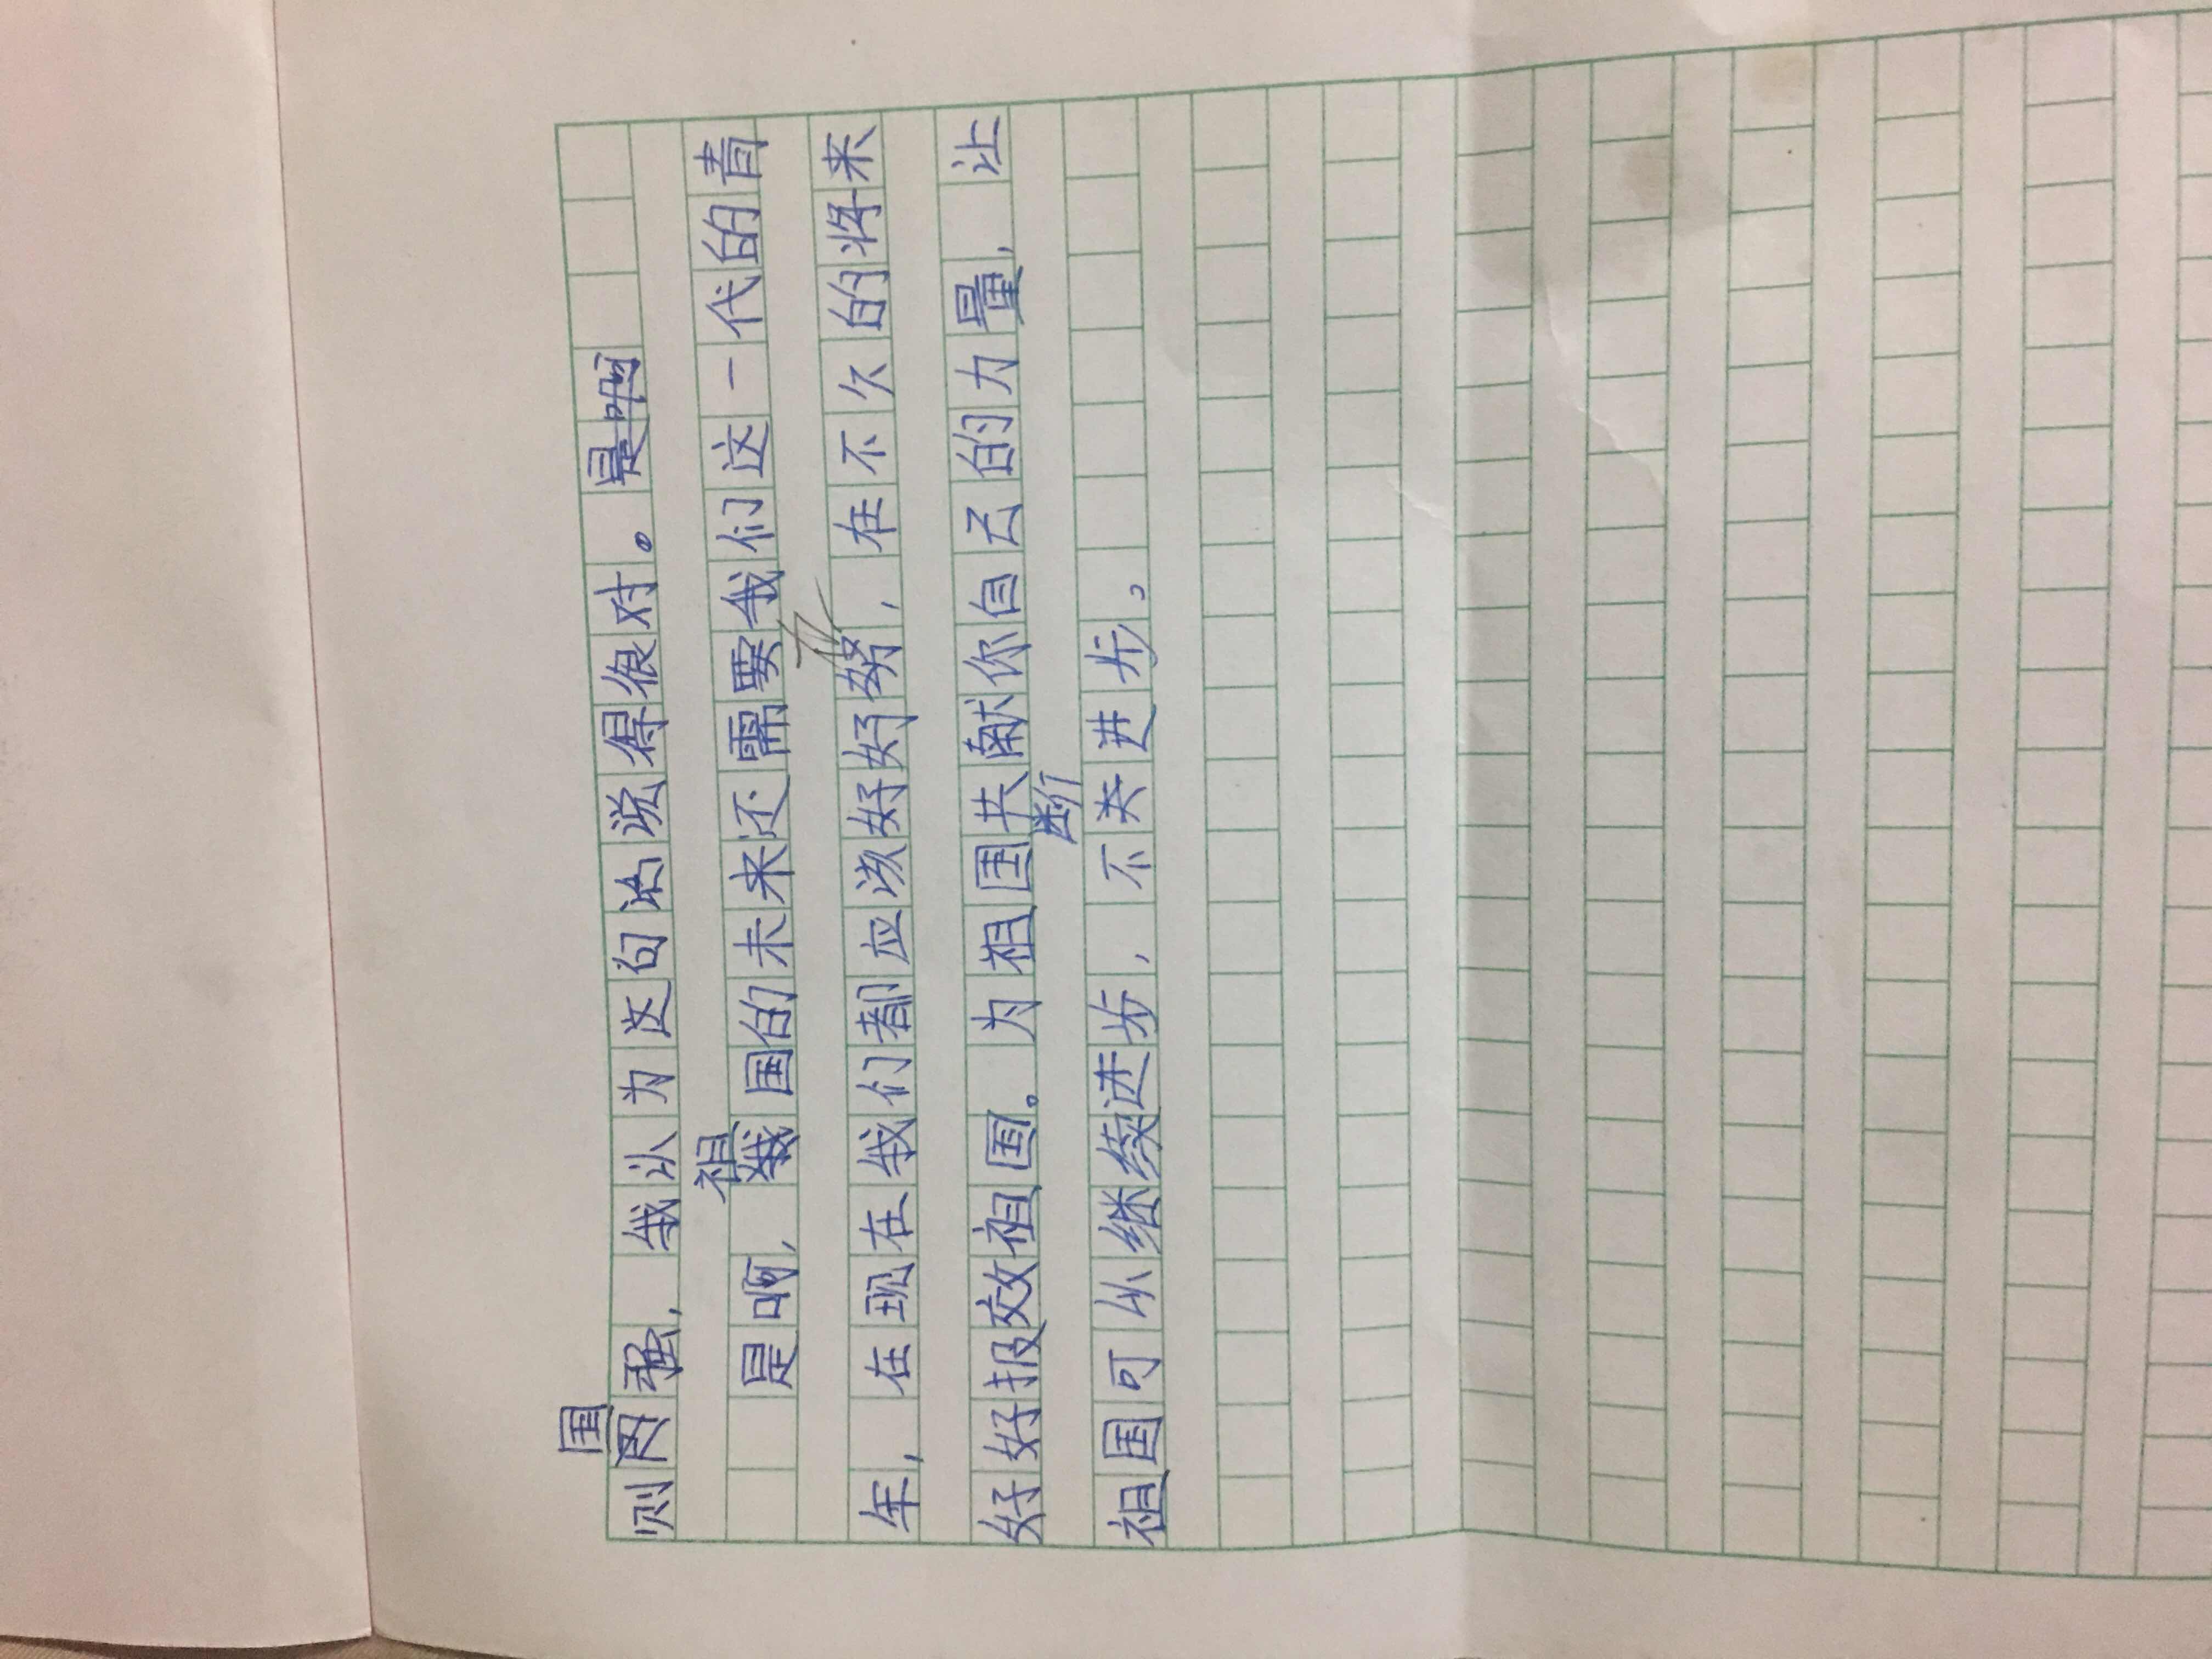 则国强，我认为这句话说得很对。
是啊，祖国的未来还需要我们这一代的青
年，在现在我们都应该好好努力，在不久的将来
好好报效祖国。为祖国共献你自己的力量，让
祖国可以继续进步，不断进步。